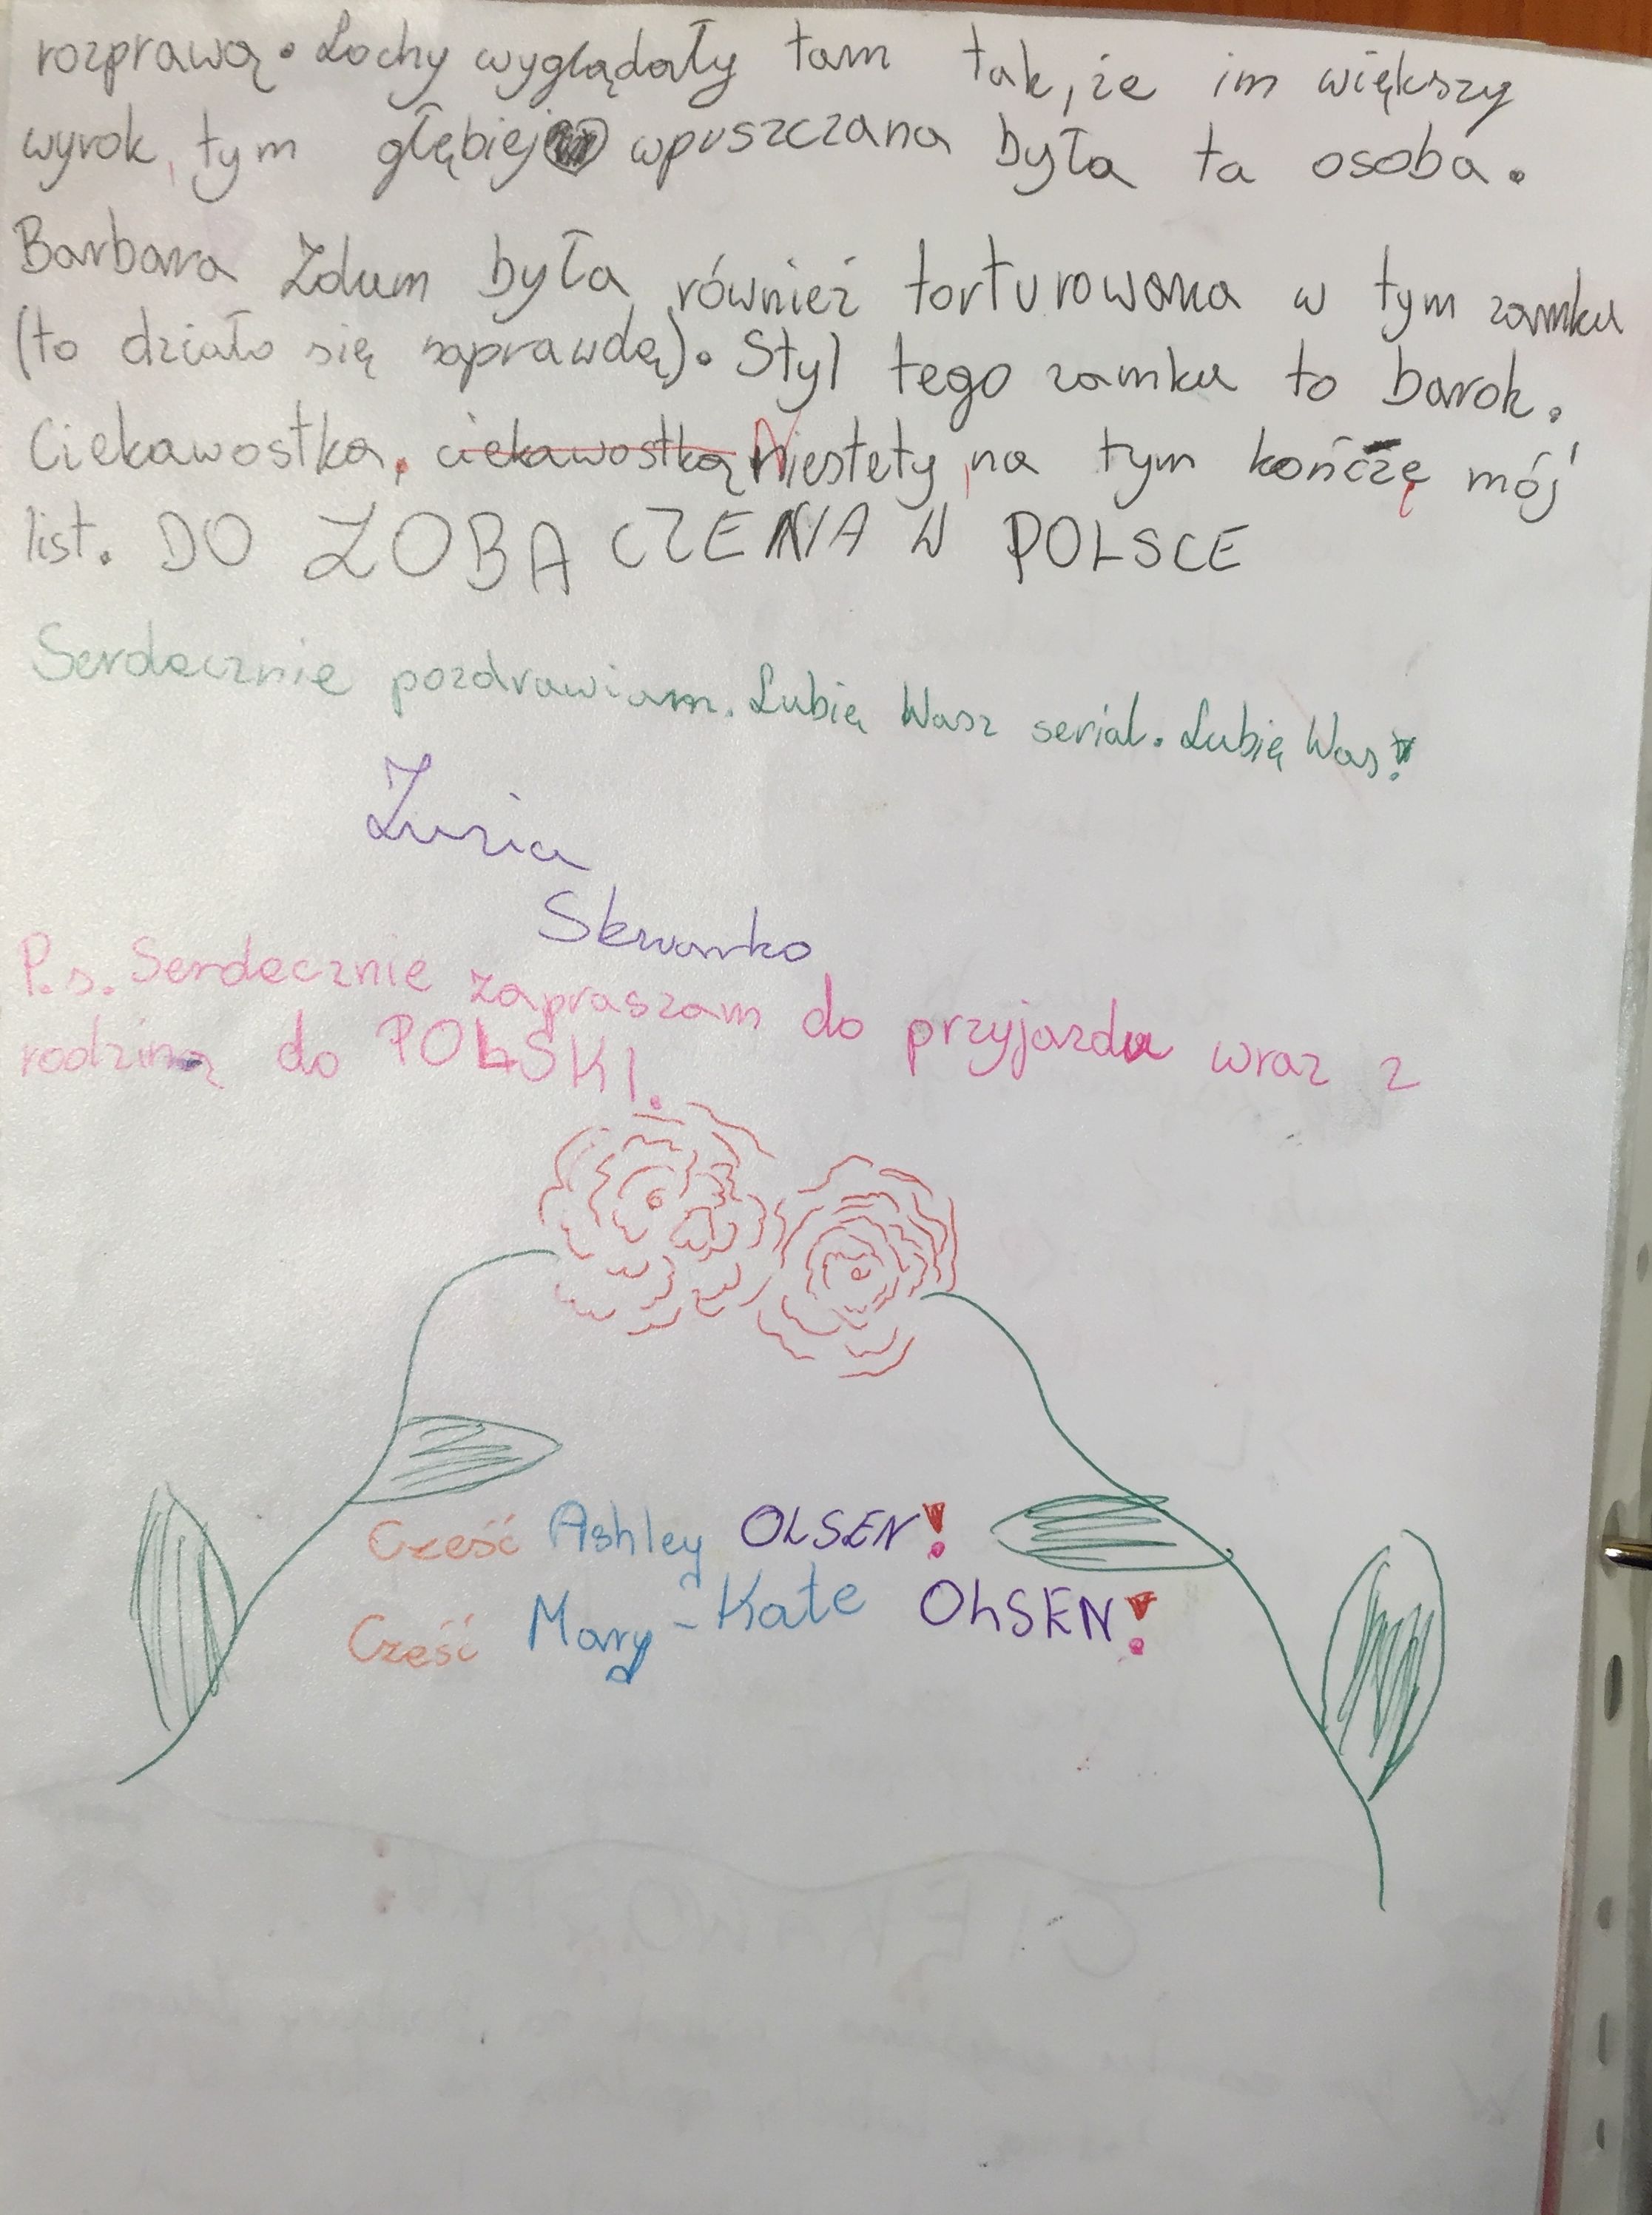 rozprawą. Lochy wyglądały tam tak, że im większy
wyrok, tym głębiej wpuszczana była ta osoba.
Barbara Zdum była również torturowana w tym zamku
(to działo się naprawdę). Styl tego zamku to barok.
Ciekawostka. ciekawostką Niestety, na tym kończę mój
list. DO ZOBACZENIA W POLSCE
Serdecznie pozdrawiam. Lubię Wasz serial. Lubię Was!
Zuzia
Skwarko
P.s. Serdecznie zapraszam do przyjazdu wraz z
rodziną do POLSKI.
Cześć Ashley OLSEN!
Cześć Mary-Kate OLSEN!